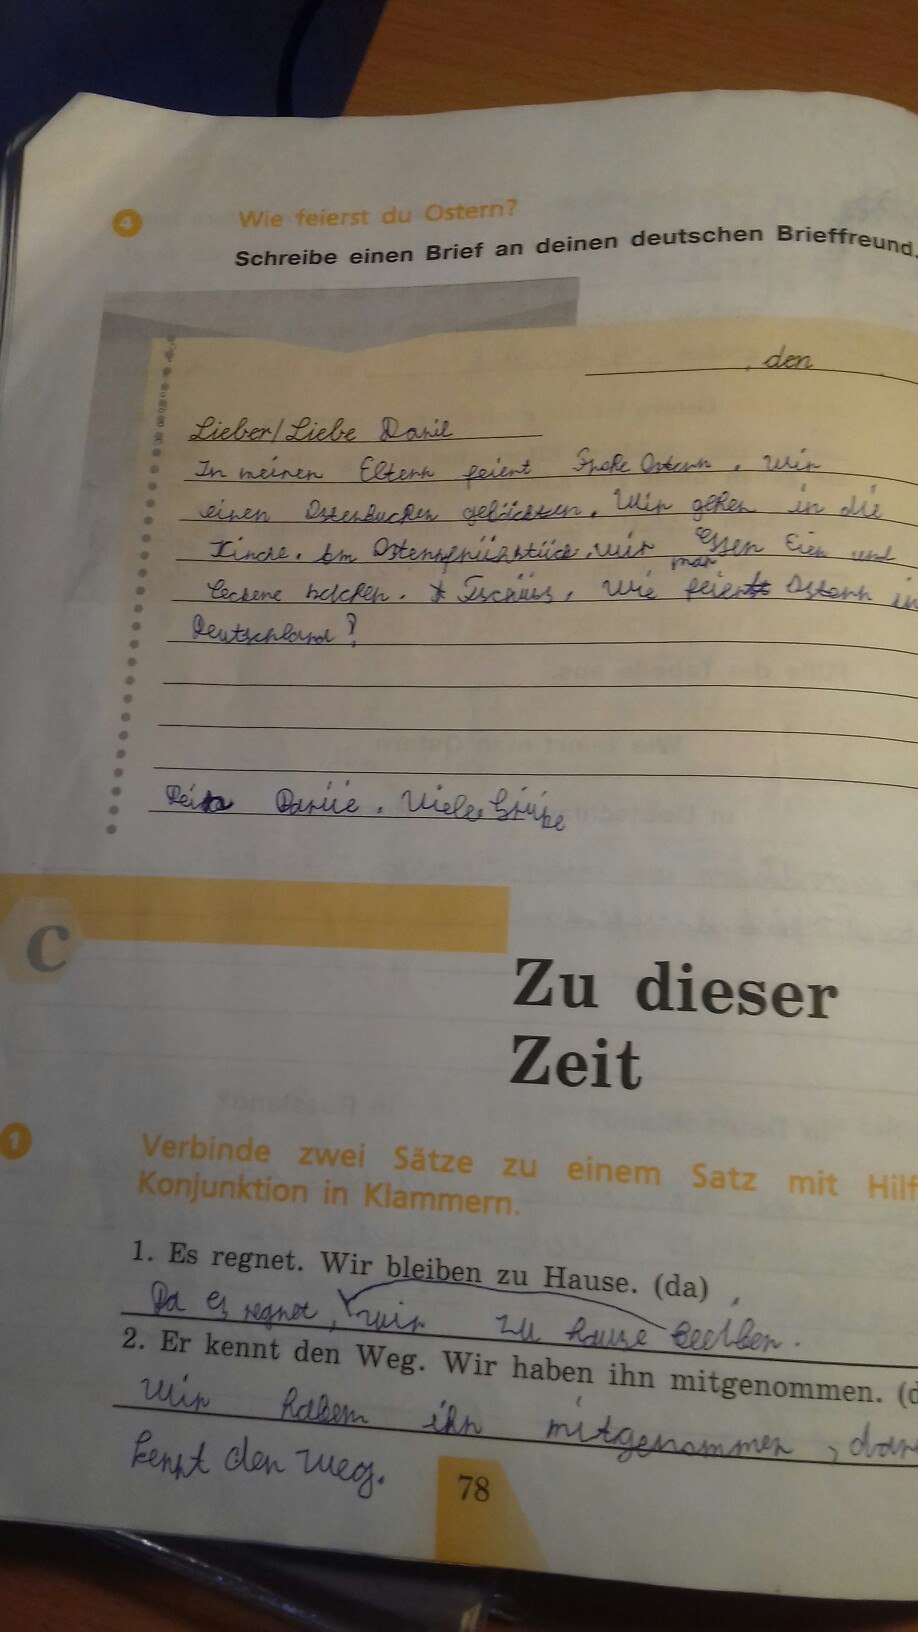 4 Wie feierst du Ostern?
Schreibe einen Brief an deinen deutschen Brieffreund.
, den
Lieber/Liebe Danil
In meinen Eltern feiert Frohe Ostern. Wir
einen Osterkuchen. Wir gehen in die
Kirche. Am Osternfrühstück, wir Essen Eier und
man
leckere backen. Tschüss, Wie feiert Ostern in
Deutschland?
Dein. Viele Grüße
C
Zu dieser
Zeit
1 Verbinde zwei Sätze zu einem Satz mit Hilf
Konjunktion in Klammern.
1. Es regnet. Wir bleiben zu Hause. (da)
Da es regnet, wir zu hause.
2. Er kennt den Weg. Wir haben ihn mitgenommen. (d
Wir haben ihn mitgenommen,
kennt den Weg.
78